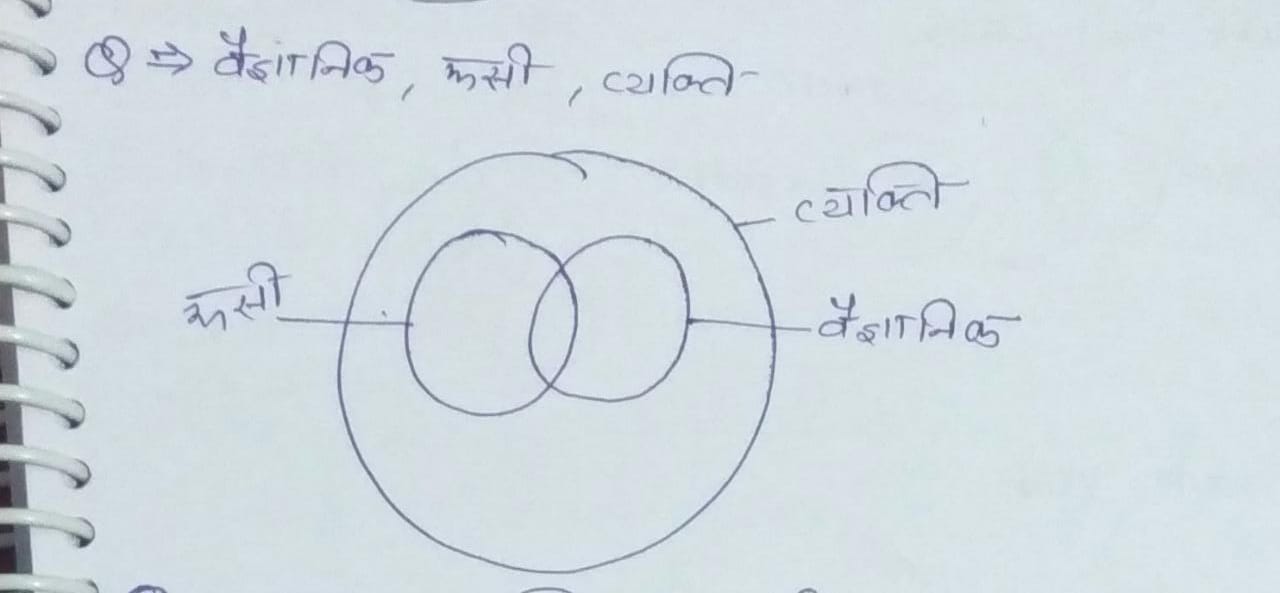 Q ⇒ वैज्ञानिक, रूसी, व्यक्ति
व्यक्ति
रूसी
वैज्ञानिक